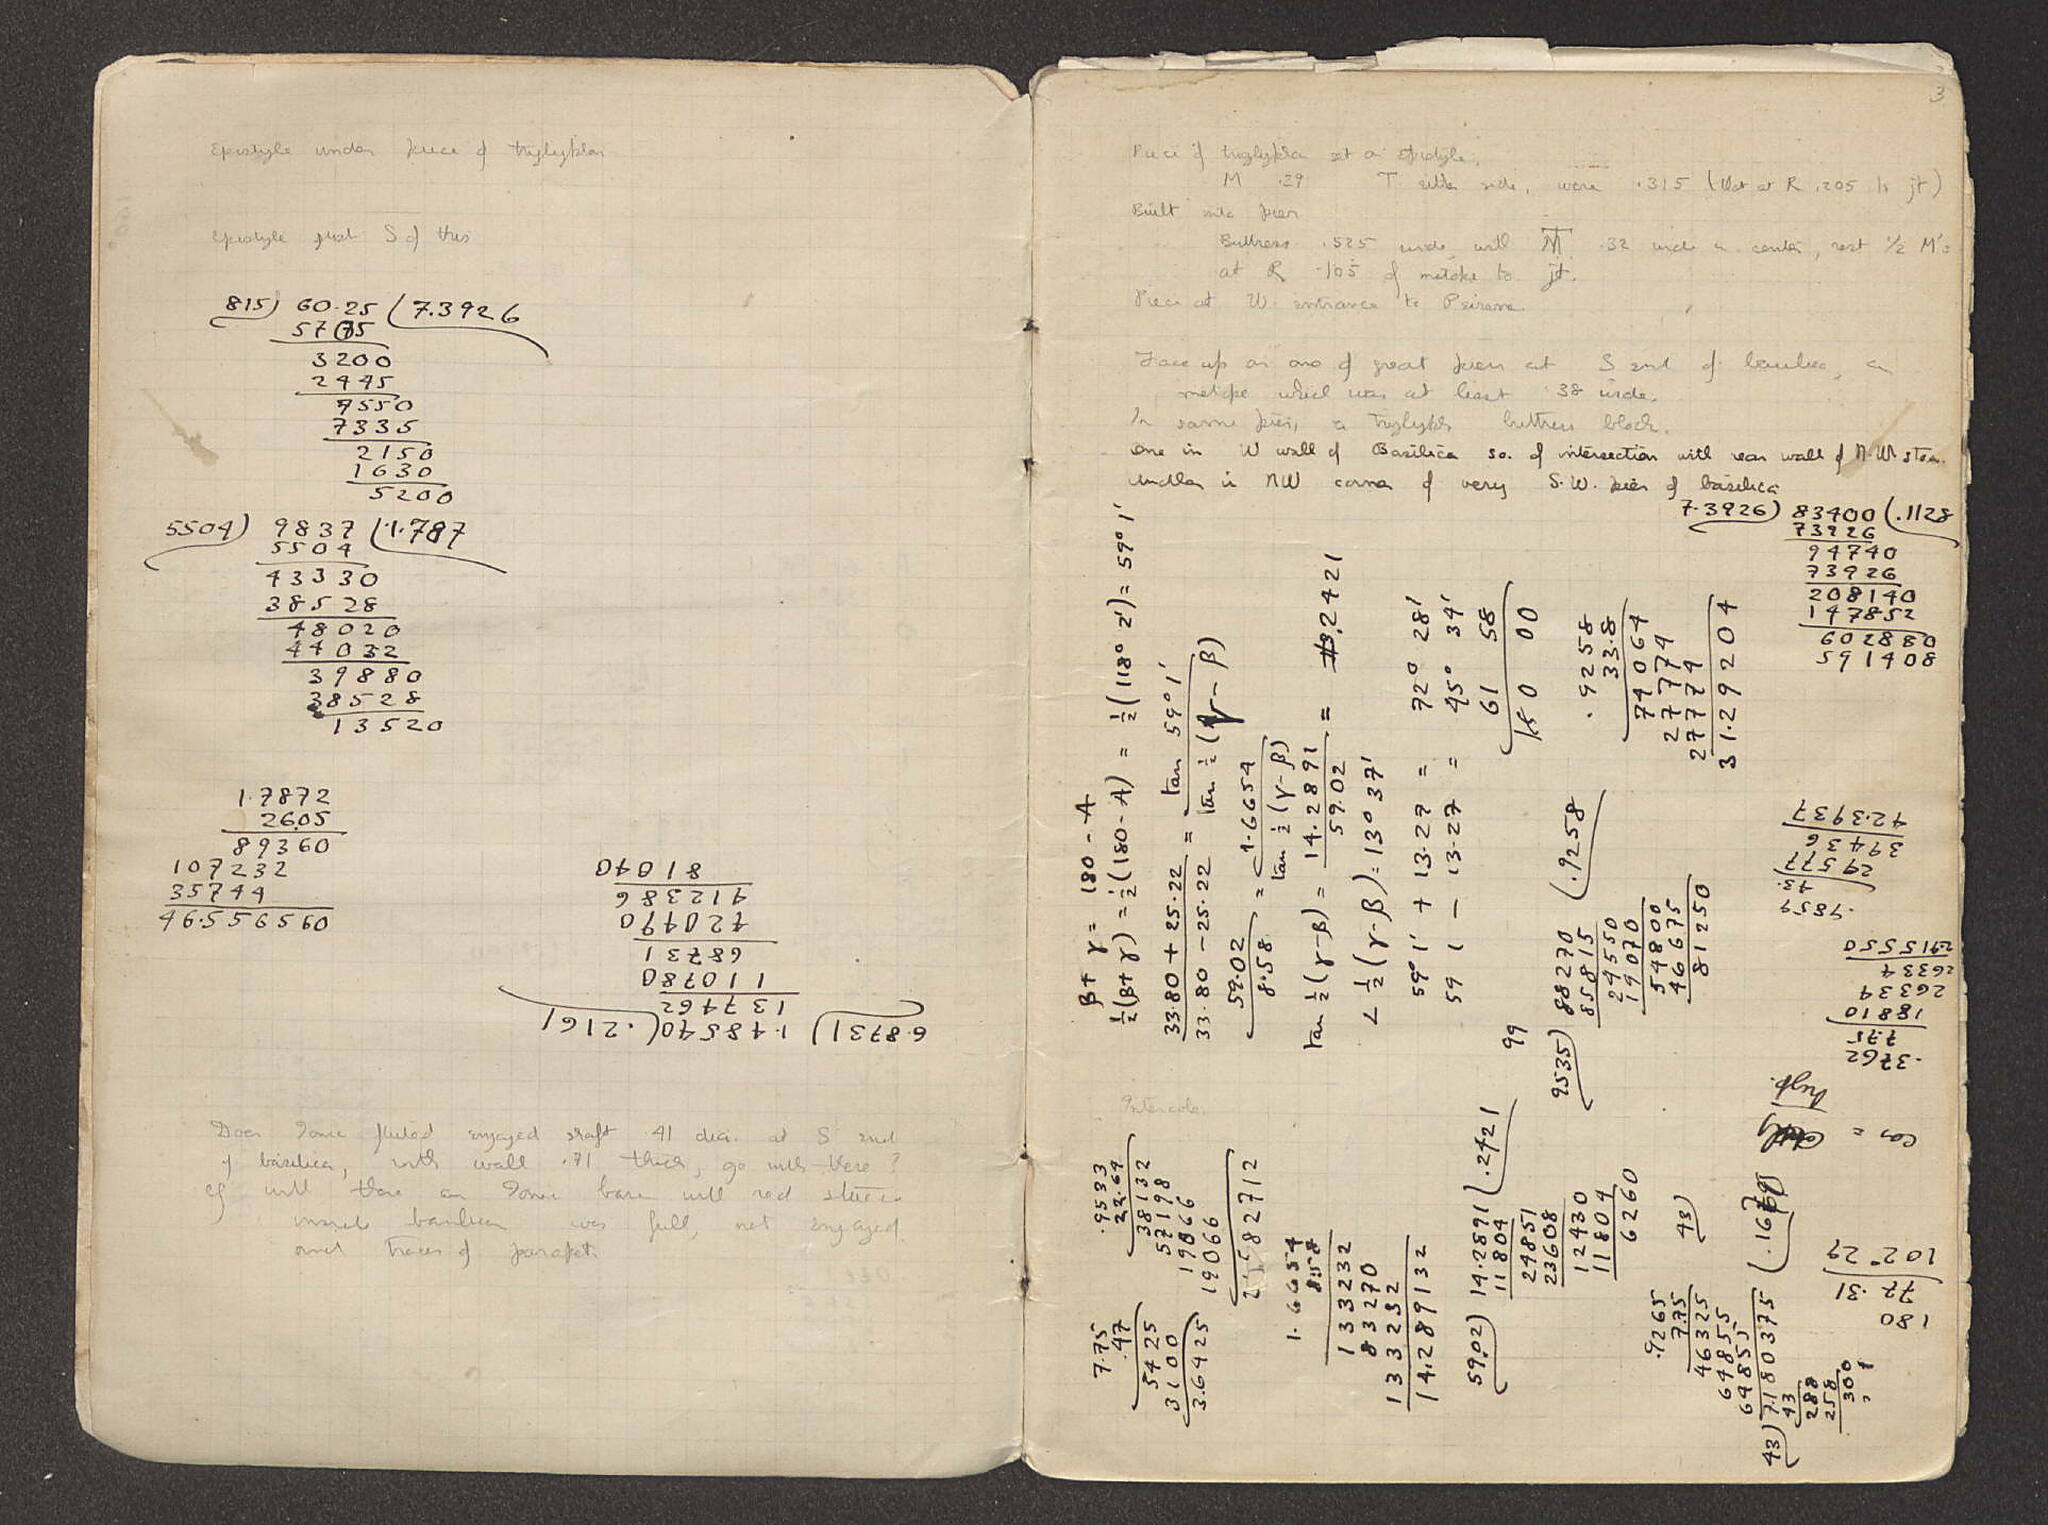 Epistyle under piece of triglyphon
Epistyle just S of this
815) 60.25 (7.3926
5705
3200
2445
7550
7335
2150
1630
5200
5504) 9837 (1.787
5504
43330
38528
48020
44032
39880
38528
13520
1.7872
26.05
89360
107232
35744
46.556560
6.8731) 1.48540 (.2161
137462
110780
68731
420490
412386
81040
Does Ionic fluted engaged shaft .41 dia. at S end
of basilica, with wall .71 thick, go with these?
Cf with these an Ionic base with red stucco
inside basilica was full, not engaged.
and traces of parapet.
3
Piece of triglyphon set on epistyle.
M .29 T either side, were .315 (that at R .205 to jt)
Built into pier
Buttress .525 wide with M .32 wide in center, rest 1/2 M's
at R .105 of metope to jt.
Piece at W. entrance to Peirene
Face up on one of great piers at S end of basilica, a
metope which was at least .38 wide.
In same pier, a triglyph buttress block.
One in W wall of Basilica so. of intersection with rear wall of N.W. stoa.
Another in NW corner of very S.W. pier of basilica
7.3926) 83400 (.1128
73926
94740
73926
208140
147852
602880
591408
β + γ = 180 - A
½(β+γ) = ½(180-A) = ½(118° 2') = 59° 1'
33.80 + 25.22 = tan 59° 1'
33.80 - 25.22 tan ½(γ-β)
59.02 = 1.6654
8.58 tan ½(γ-β)
tan ½(γ-β) = 14.2891 = .2421
59.02
∠ ½(γ-β) = 13° 37'
59° 1' + 13.27 = 72° 28'
59 1 - 13.27 = 45° 34'
61 58
180 00
99
9535) 88270 (.9258
85815
24550
19070
54800
46675
81250
.9258
33.8
74064
27774
27774
31.29204
Intercols.
.9533
22.64
38132
57198
19066
19066
7.75
.47
5425
3100
3.6425
1.6654
8.58
133232
83270
133232
14.289132
59.02) 14.2891 (.2421
11804
24851
23608
12430
11804
6260
43)
.9265
7.75
46325
64855
64855
43) 7.180375 (
43
288
258
300
.9859
43.
29577
39436
42.3937
.3762
7.75
18810
26334
26334
2915550
cos =
hyp.
180
77.31
102.29